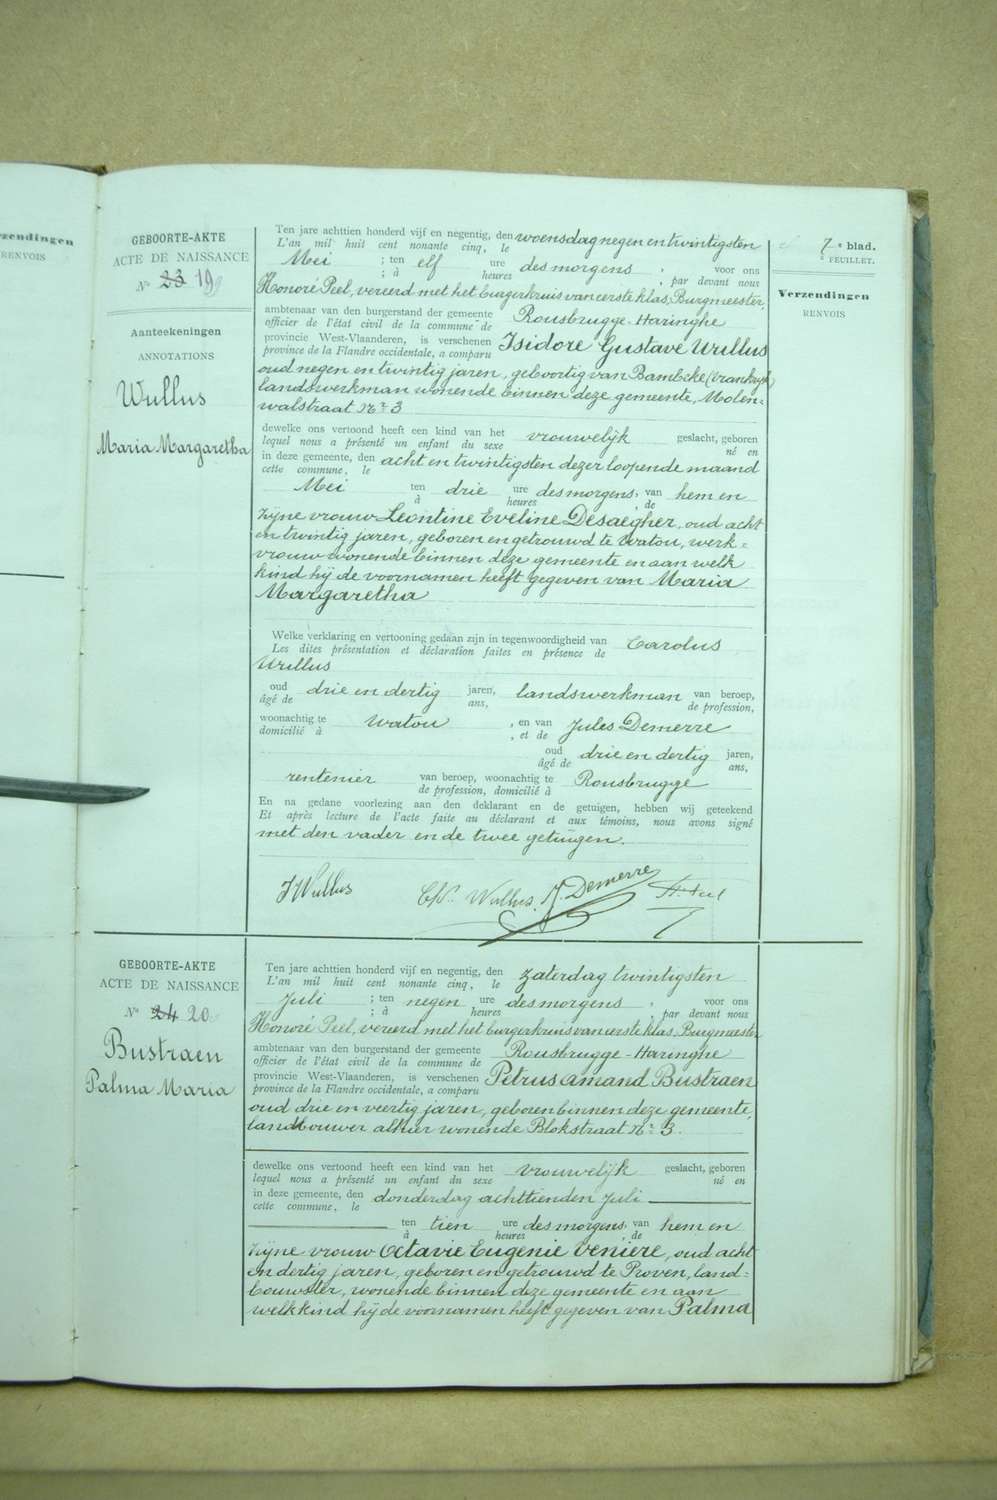 zendingen
RENVOIS
7e blad.
e FEUILLET.
Verzendingen
RENVOIS
GEBOORTE-AKTE
ACTE DE NAISSANCE
No 23 19
Aanteekeningen
ANNOTATIONS
Wullus
Maria Margaretha
Ten jare achttien honderd vijf en negentig, den woensdag negen en twintigsten
L'an mil huit cent nonante cinq, le
Mei ; ten elf ure des morgens , voor ons
; à heures , par devant nous
Honoré Peel, vereerd met het burgerkruis van eerste klas, Burgmeester,
ambtenaar van den burgerstand der gemeente Rousbrugge-Haringhe
officier de l'état civil de la commune de
provincie West-Vlaanderen, is verschenen Isidore Gustave Wullus
province de la Flandre occidentale, a comparu
oud negen en twintig jaren, geboortig van Bambeke (Vrankryk)
landswerkman wonende binnen deze gemeente, Molen=
walstraat No 3
dewelke ons vertoond heeft een kind van het vrouwelijk geslacht, geboren
lequel nous a présenté un enfant du sexe né en
in deze gemeente, den acht en twintigsten dezer loopende maand
cette commune, le
Mei ten drie ure des morgens, van hem en
à heures , de
zijne vrouw Leontine Eveline Desaegher, oud acht
en twintig jaren, geboren en getrouwd te Watou, werk=
vrouw wonende binnen deze gemeente en aan welk
kind hij de voornamen heeft gegeven van Maria
Margaretha
Welke verklaring en vertooning gedaan zijn in tegenwoordigheid van Carolus
Les dites présentation et déclaration faites en présence de
Wullus
oud drie en dertig jaren, landswerkman van beroep,
âgé de ans, de profession,
woonachtig te Watou , en van Jules Demerre
domicilié à , et de
oud drie en dertig jaren,
âgé de ans,
rentenier van beroep, woonachtig te Rousbrugge
de profession, domicilié à
En na gedane voorlezing aan den deklarant en de getuigen, hebben wij geteekend
Et après lecture de l'acte faite au déclarant et aux témoins, nous avons signé
met den vader en de twee getuigen.
J Wullus Ch. Wullus. J. Demerre H. Peel
GEBOORTE-AKTE
ACTE DE NAISSANCE
No 24 20
Bustraen
Palma Maria
Ten jare achttien honderd vijf en negentig, den zaterdag twintigsten
L'an mil huit cent nonante cinq, le
Juli ; ten negen ure des morgens , voor ons
; à heures , par devant nous
Honoré Peel, vereerd met het burgerkruis van eerste klas, Burgmeester
ambtenaar van den burgerstand der gemeente Rousbrugge-Haringhe
officier de l'état civil de la commune de
provincie West-Vlaanderen, is verschenen Petrus Amand Bustraen
province de la Flandre occidentale, a comparu
oud drie en veertig jaren, geboren binnen deze gemeente,
landbouwer alhier wonende Blokstraat No 3.
dewelke ons vertoond heeft een kind van het vrouwelijk geslacht, geboren
lequel nous a présenté un enfant du sexe né en
in deze gemeente, den donderdag achttienden Juli
cette commune, le
ten tien ure des morgens, van hem en
à heures de
zijne vrouw Octavie Eugenie Veniere, oud acht
en dertig jaren, geboren en getrouwd te Proven, land=
bouwster, wonende binnen deze gemeente en aan
welk kind hij de voornamen heeft gegeven van Palma